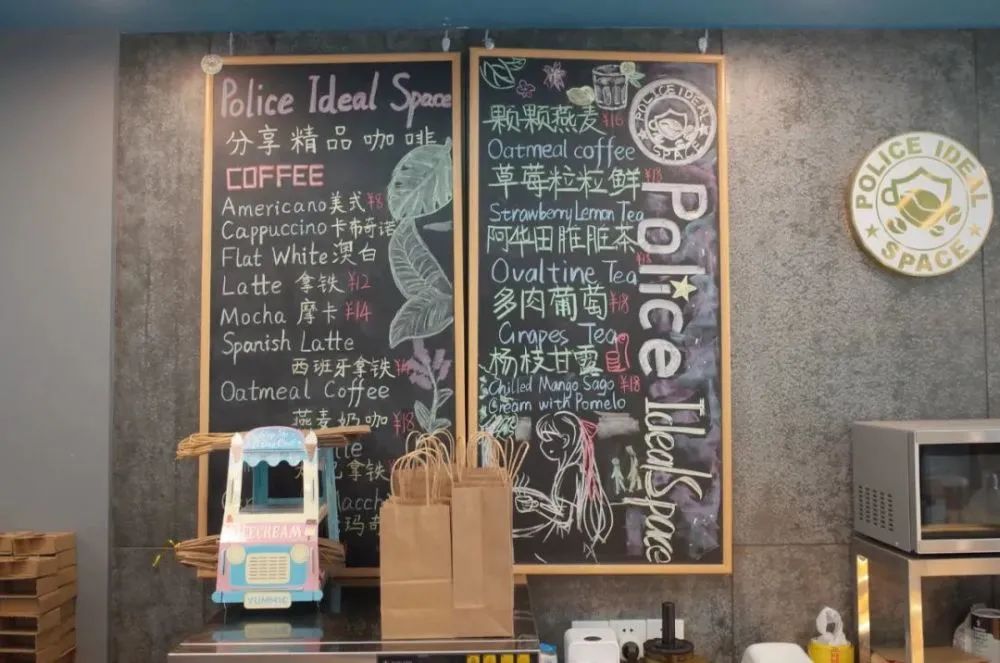 Police Ideal Space
分享精品咖啡
COFFEE
Americano美式¥8
Cappuccino卡布奇诺
Flat White澳白
Latte 拿铁¥12
Mocha 摩卡¥14
Spanish Latte
西班牙拿铁
Oatmeal Coffee
燕麦奶咖¥18
拿铁
颗颗燕麦¥16
Oatmeal coffee
草莓粒粒鲜¥18
Strawberry Lemon Tea
阿华田脏脏茶
Ovaltine Tea
多肉葡萄¥18
Grapes Tea
杨枝甘露
Chilled Mango Sago ¥18
Cream with Pomelo
POLICE IDEAL
SPACE
Police Ideal Space
POLICE IDEAL
SPACE
ICECREAM